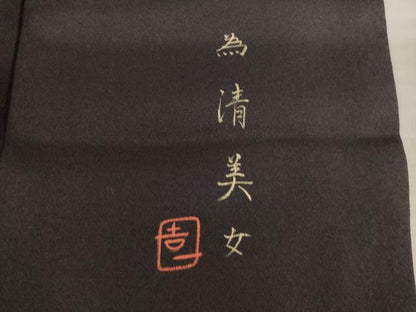 為清美女
吉